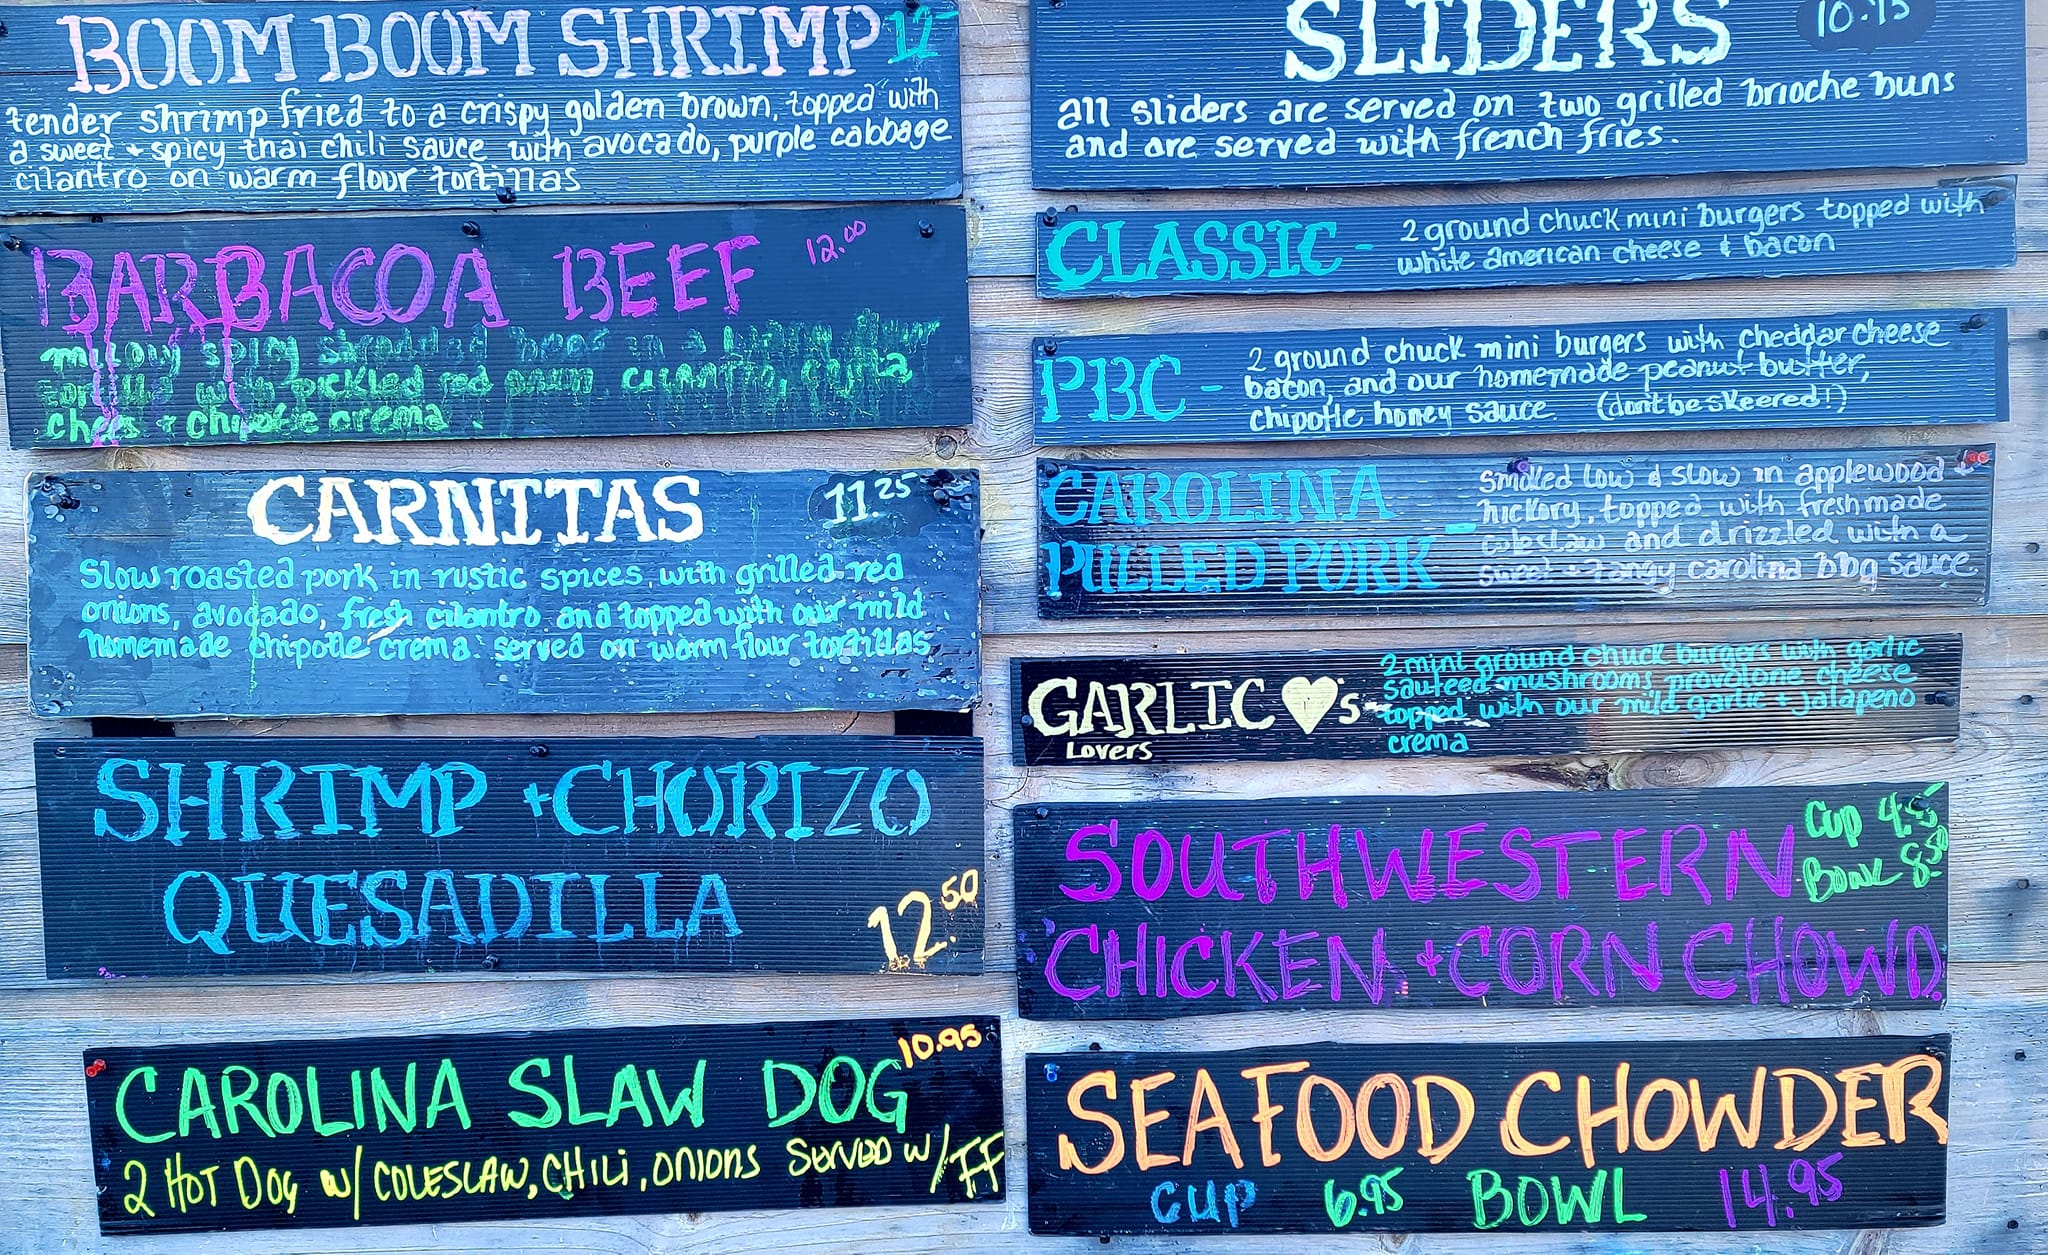 BOOM BOOM SHRIMP 12-
tender shrimp fried to a crispy golden brown, topped with
a sweet + spicy thai chili sauce with avocado, purple cabbage
cilantro on warm flour tortillas
BARBACOA BEEF 12.00
spicy shredded in a
with pickled red cilantro,
chees + chipotle crema.
CARNITAS 11.25
Slow roasted pork in rustic spices, with grilled red
onions, avocado, fresh cilantro and topped with our mild
homemade chipotle crema. served on warm flour tortillas
SHRIMP + CHORIZO
QUESADILLA
12.50
CAROLINA SLAW DOG 10.95
2 HOT DOG W/ COLESLAW, CHILI, ONIONS SERVED W/FF
SLIDERS 10.95
all sliders are served on two grilled brioche buns
and are served with french fries.
CLASSIC - 2 ground chuck mini burgers topped with
white american cheese + bacon
PBC - 2 ground chuck mini burgers with cheddar cheese
bacon, and our homemade peanut butter,
chipotle honey sauce. (don't be skeered!)
CAROLINA
PULLED PORK -
smoked low & slow in applewood
hickory, topped with fresh made
coleslaw and drizzled with a
sweet + tangy carolina bbq sauce
GARLIC ♥'s -
Lovers
2 mini ground chuck burgers with garlic
sauteed mushrooms provolone cheese
topped with our mild garlic + jalapeno
crema
SOUTHWESTERN
Cup 4.95
Bowl 8.50
CHICKEN + CORN CHOWD.
SEAFOOD CHOWDER
CUP 6.95 BOWL 14.95